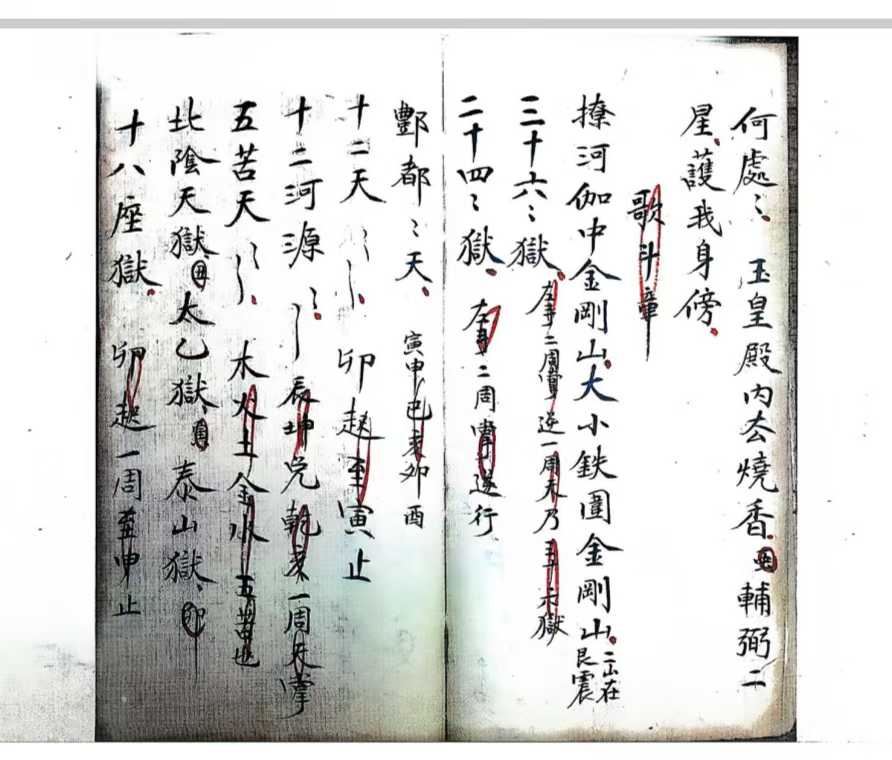 何處〻玉皇殿內去燒香輔弼二
星護我身傍
歌斗章
撩河伽中金剛山大小鉄圍金剛山二山在艮震
三十六〻獄左手二周掌逆一周天乃五六獄
二十四〻獄左手二周掌逆行
酆都〻天寅申巳亥卯酉
十二天〻卯起至寅止
十二河源〻辰坤兌乾亥一周天掌
五苦天〻木火土金水五苦也
北陰天獄太乙獄泰山獄
十八座獄卯起一周至申止